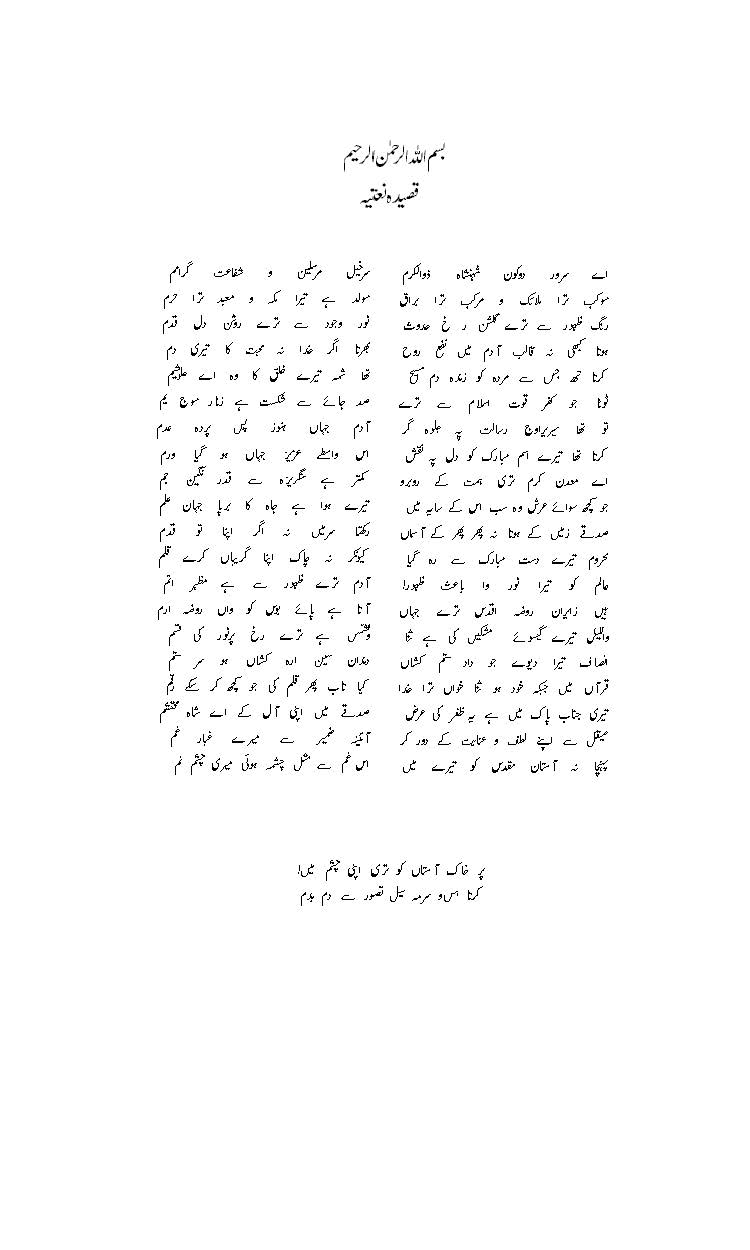 بسم اللہ الرحمٰن الرحیم
قصیدہ نعتیہ
اے سرور دوکون شہنشاہ ذوالکرم سرخیل مرسلین و شفاعت گرامم
موکب ترا ملائک و مرکب ترا براق مولد ہے تیرا مکہ و معبد ترا حرم
رنگ ظہور سے ترے گلشن رخ حدوث نور وجود سے ترے روشن دل قدم
ہوتا کبھی نہ قالب آدم میں نفع روح بھرتا اگر خدا نہ محبت کا تیری دم
کرتا تھ جس سے مردہ کو زندہ دم مسیح تھا شمہ تیرے خلق کا وہ اے علاشیم
ٹوٹا جو کفر قوت اسلام سے ترے صد جائے سے شکست ہے زنار موج یم
تو تھا سریراوج رسالت پہ جلوہ گر آدم جہاں ہنوز پس پردہ عدم
کرتا تھا تیرے اسم مبارک کو دل پہ نقش اس واسطے عزیز جہاں ہو گیا ورم
اے معدن کرم تری ہمت کے روبرو کمتر ہے سنگریزہ سے قدر نگین جم
جو کچھ سوائے عرش وہ سب اس کے سایہ میں تیرے ہوا ہے جاہ کا برپا جہاں علم
صدقے زمیں کے ہوتا نہ پھر پھر کے آساں رکھتا سرمیں نہ اگر اپنا تو قدم
محروم تیرے دست مبارک سے رہ گیا کیونکر نہ چاک اپنا گریباں کرے قلم
عالم کو تیرا نور وا باعث ظہورا آدم ترے ظہور سے ہے مظہر اتم
ہیں زایران روضہ اقدس ترے جہاں آتا ہے پائے بوس کو واں روضہ ارم
واللیل تیرے گیسوئے مشکیں کی ہے ثنا وشمس ہے ترے رخ پرنور کی قسم
انصاف تیرا دیوے جو داد ستم کشاں دندان سین ارہ کشاں ہو سر ستم
قرآں میں جبکہ خود ہو ثنا خواں ترا خدا کیا تاب پھر قلم کی جو کچھ کر سکے رقم
تیری جناب پاک میں ہے یہ ظفر کی عرض صدقے میں اپنی آل کے اے شاہ محتشم
صیقل سے اپنے لطف و عنایت کے دور کر آئینہ ضمیر سے میرے غبار غم
پہنچا نہ آستان مقدس کو تیرے میں اس غم سے مثل چشمہ ہوئی میری چشم نم
پر خاک آستاں کو تری اپنی چشم میں!
کرتا ہس و سرمہ سیل تصور سے دم بدم